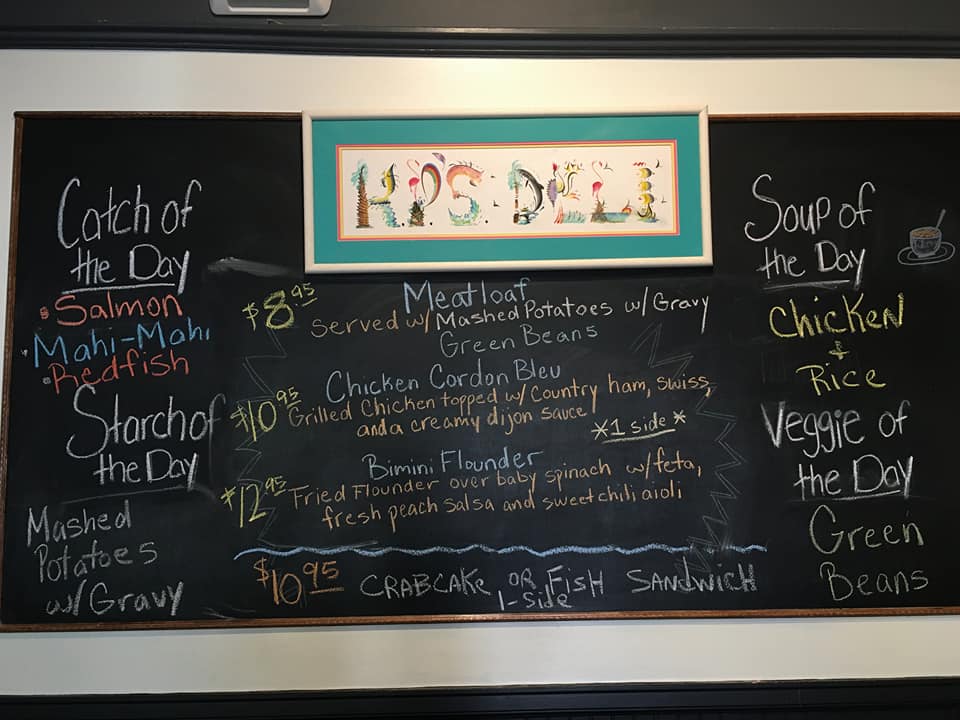 H.P.'S DELI
Catch of
the Day
Salmon
Mahi-Mahi
Redfish
Starch of
the Day
Mashed
Potatoes
w/ Gravy
$8.95 Meatloaf
Served w/ Mashed Potatoes w/ Gravy
Green Beans
$10.95 Chicken Cordon Bleu
Grilled Chicken topped w/ Country ham, swiss,
and a creamy dijon sauce
*1 side*
$12.95 Bimini Flounder
Fried Flounder over baby spinach w/ feta,
fresh peach salsa and sweet chili aioli
$10.95 CRABCAKE OR FISH SANDWICH
1-Side
Soup of
the Day
Chicken
+
Rice
Veggie of
the Day
Green
Beans